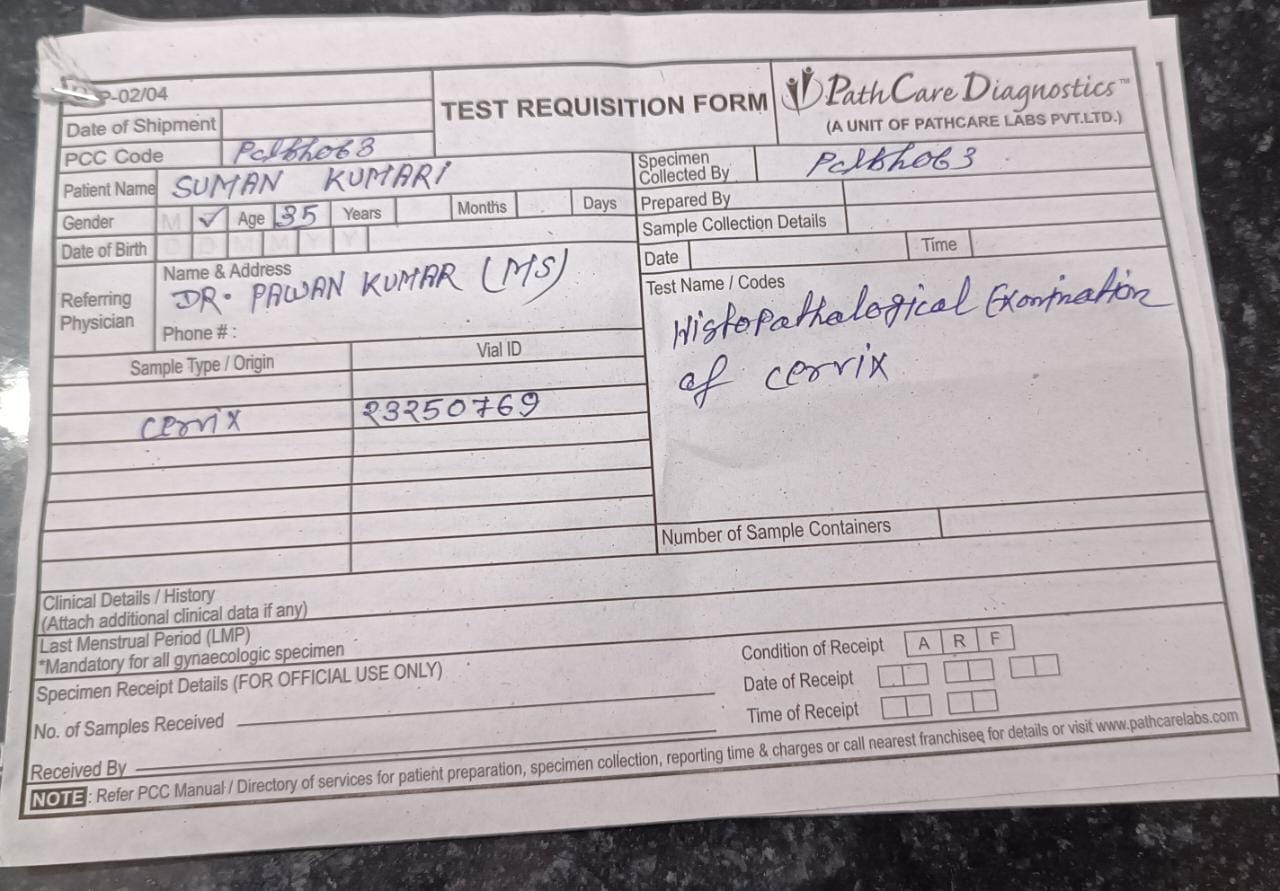 P-02/04
TEST REQUISITION FORM
PathCare Diagnostics™
(A UNIT OF PATHCARE LABS PVT.LTD.)
Date of Shipment
PCC Code Pclbh063
Patient Name SUMAN KUMARI
Gender M ✓ Age 35 Years Months Days
Date of Birth D D M M Y Y
Referring Physician
Name & Address
DR. PAWAN KUMAR (MS)
Phone # :
Specimen Collected By Pclbh063
Prepared By
Sample Collection Details
Date Time
Test Name / Codes
Histopathalogical Examination
of cervix
Sample Type / Origin Vial ID
cervix 23250769
Number of Sample Containers
Clinical Details / History
(Attach additional clinical data if any)
Last Menstrual Period (LMP)
*Mandatory for all gynaecologic specimen
Specimen Receipt Details (FOR OFFICIAL USE ONLY)
No. of Samples Received
Received By
Condition of Receipt A R F
Date of Receipt
Time of Receipt
NOTE : Refer PCC Manual / Directory of services for patient preparation, specimen collection, reporting time & charges or call nearest franchisee for details or visit www.pathcarelabs.com